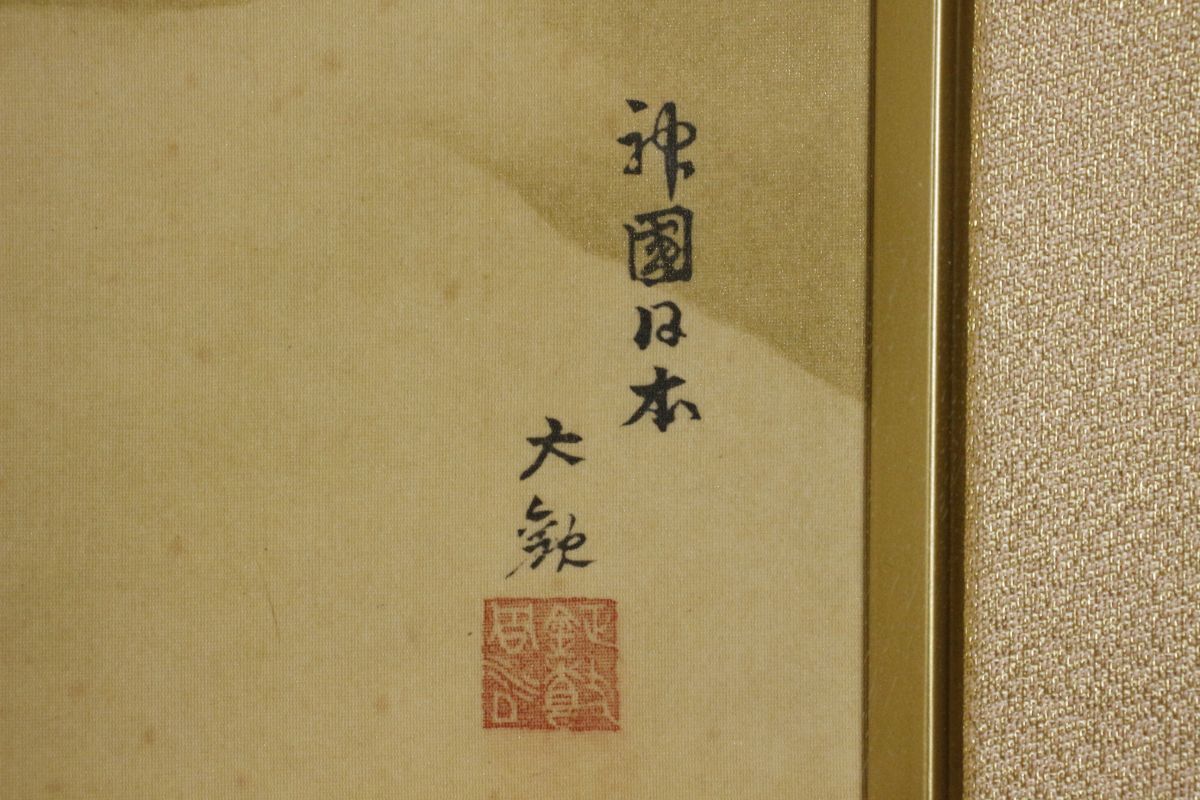 神國日本
大觀